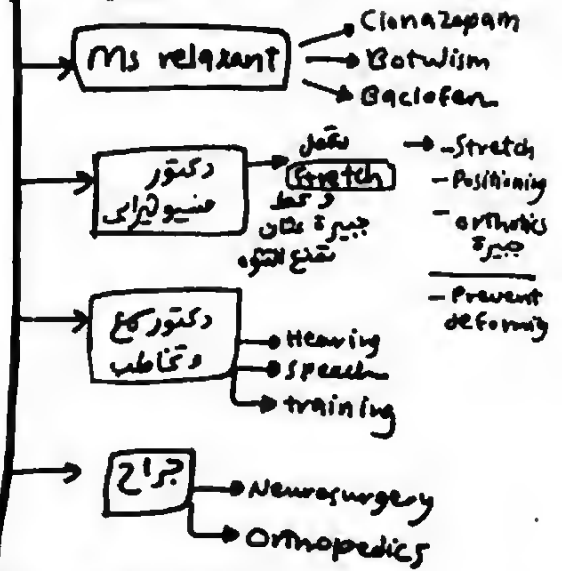 Ms relaxant
Clonazepam
Botulism
Baclofen
دكتور
فيزيوثيرابى
نعمل
Stretch
و نعمل
جبيرة عشان
نمنع التشوه
- Stretch
- Positioning
- orthotics
جبيرة
- Prevent
deformity
دكتور سمع
وتخاطب
Hearing
speech
training
جراح
Neurosurgery
Orthopedics